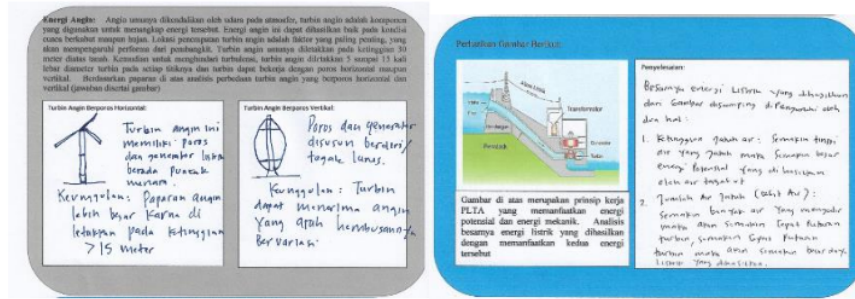 Energi Angin: Angin umumnya dikendalikan oleh udara pada atmosfer, turbin angin adalah komponen
yang digunakan untuk menangkap energi tersebut. Energi angin ini dapat dihasilkan baik pada kondisi
cuaca berkabut maupun hujan. Lokasi penempatan turbin angin adalah faktor yang paling penting, yang
akan mempengaruhi performa dari pembangkit. Turbin angin umumnya diletakkan pada ketinggian 30
meter diatas tanah. Kemudian untuk menghindari turbulensi, turbin angin diletakkan 5 sampai 15 kali
lebar diameter turbin pada setiap titiknya dan turbin dapat bekerja dengan poros horizontal maupun
vertikal. Berdasarkan paparan di atas analisis perbedaan turbin angin yang berporos horizontal dan
vertikal (jawaban disertai gambar)
Turbin Angin Berporos Horizontal:
Turbin angin ini
memiliki poros
dan generator listrik
berada puncak
menara.
Keunggulan: Paparan angin
lebih besar karna di
letakkan pada ketinggian
>15 meter
Turbin Angin Berporos Vertikal:
Poros dan generator
disusun berdiri/
tegak lurus.
Keunggulan: Turbin
dapat menerima angin
yang arah hembusannya
bervariasi
Perhatikan Gambar Berikut:
Transformator
Generator
Turbin
Gambar di atas merupakan prinsip kerja
PLTA yang memanfaatkan energi
potensial dan energi mekanik. Analisis
besarnya energi listrik yang dihasilkan
dengan memanfaatkan kedua energi
tersebut
Penyelesaian:
Besarnya energi listrik yang dihasilkan
dari Gambar disamping dipengaruhi oleh
dua hal:
1. Ketinggian jatuh air: Semakin tinggi
air yang jatuh maka semakin besar
energi Potensial yang dihasilkan
oleh air tersebut
2. Jumlah Air Jatuh (Debit Air):
Semakin banyak air yang mengalir
maka akan semakin cepat Putaran
turbin, semakin cepat Putaran
turbin maka akan semakin besar daya
listrik yang dihasilkan.